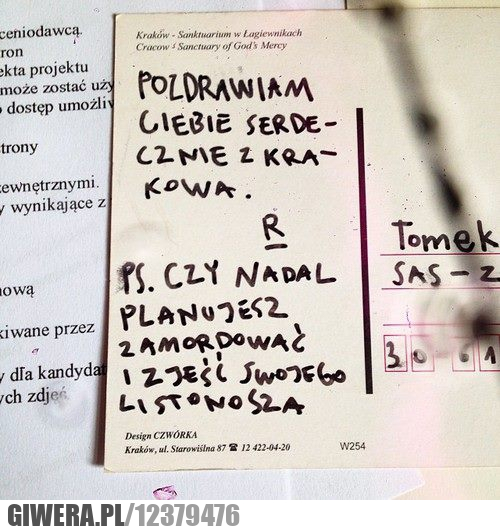 ceniodawcą.
ron
ekta projektu
może zostać uży
o dostęp umożliw
trony
ewnętrznymi.
y wynikające z
nową
kiwane przez
y dla kandydat
ych zdjęć
Kraków - Sanktuarium w Łagiewnikach
Cracow - Sanctuary of God's Mercy
POZDRAWIAM
CIEBIE SERDE-
CZNIE Z KRA-
KOWA.
R
PS. CZY NADAL
PLANUJESZ
ZAMORDOWAĆ
I ZJEŚĆ SWOJEGO
LISTONOSZA
Design CZWÓRKA
Kraków, ul. Starowiślna 87 ☎ 12 422-04-20
W254
Tomek
SAS-Z
30-61
GIWERA.PL/12379476